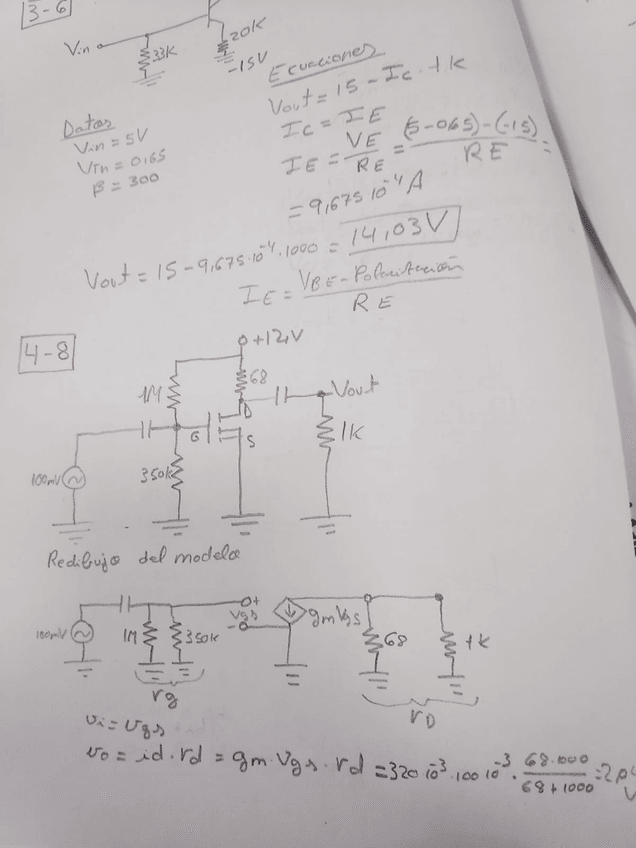 3-6
Vin
33K
20K
-15V
Ecuaciones
Vout = 15 - Ic . 1K
Datos
Vin = 5V
VTh = 0,65
β = 300
Ic = IE
IE = VE/RE = (5-0,65)-(-15)/RE =
= 9,675 10⁻⁴ A
Vout = 15 - 9,675·10⁻⁴·1000 = 14,03V
IE = VBE - Polarización/RE
4-8
+12V
1M
68
D
Vout
G
S
1K
100mV
350K
Redibujo del modelo
100mV
1M
350K
+
Vgs
-
gmVgs
68
1K
rg
rD
vi = vgs
vo = id . rd = gm . Vgs . rd = 320 10⁻³ . 100 10⁻³ . 68.000/68+1000 =